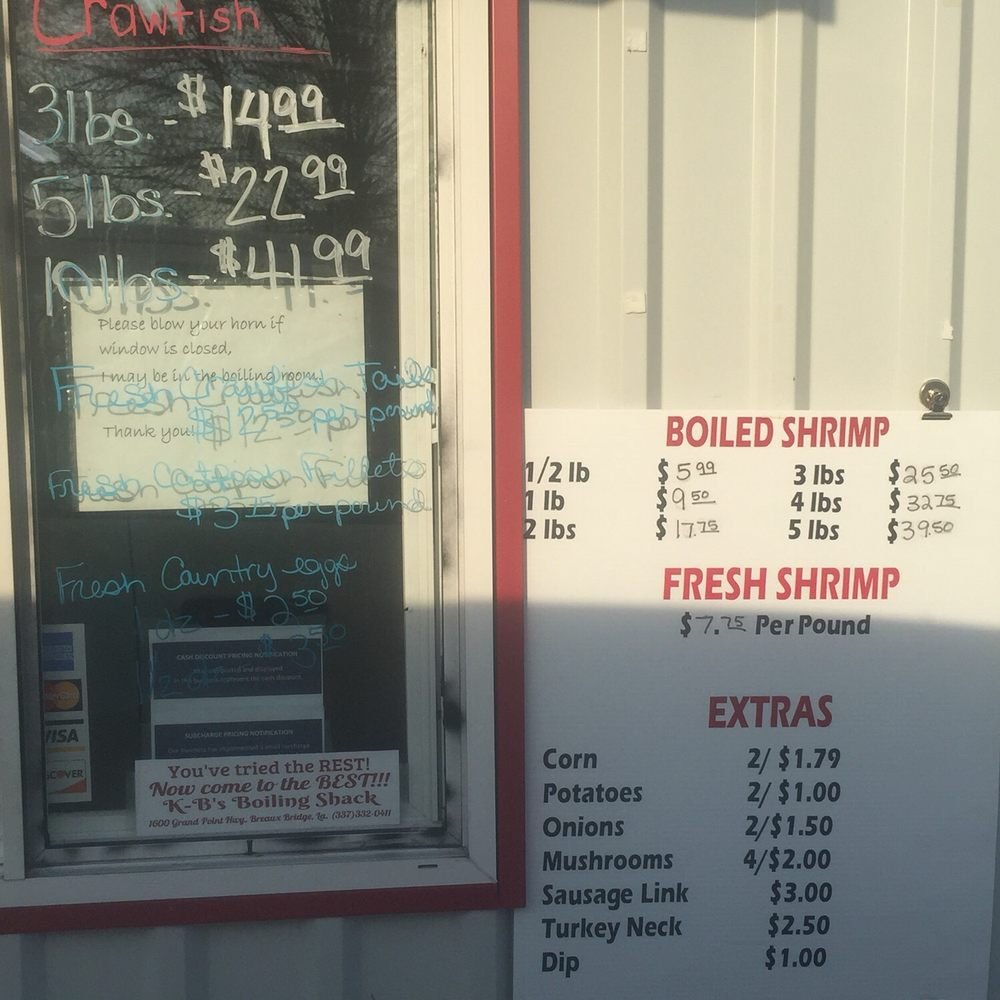 Crawfish
3 lbs. - $14.99
5 lbs. - $22.99
10 lbs - $41.99
Please blow your horn if
window is closed,
I may be in the boiling room!
Thank you!
Fresh Crawfish Tails
$12.50 per pound
Fresh Catfish Fillets
$3.75 per pound
Fresh Country eggs
dz - $2.50
CASH DISCOUNT PRICING NOTIFICATION
SURCHARGE PRICING NOTIFICATION
MasterCard
VISA
You've tried the REST!
Now come to the BEST!!!
K-B's Boiling Shack
1600 Grand Point Hwy. Breaux Bridge, La. (337)332-0411
BOILED SHRIMP
1/2 lb $5.99 3 lbs $25.50
1 lb $9.50 4 lbs $32.75
2 lbs $17.75 5 lbs $39.50
FRESH SHRIMP
$7.75 Per Pound
EXTRAS
Corn 2/ $1.79
Potatoes 2/ $1.00
Onions 2/$1.50
Mushrooms 4/$2.00
Sausage Link $3.00
Turkey Neck $2.50
Dip $1.00